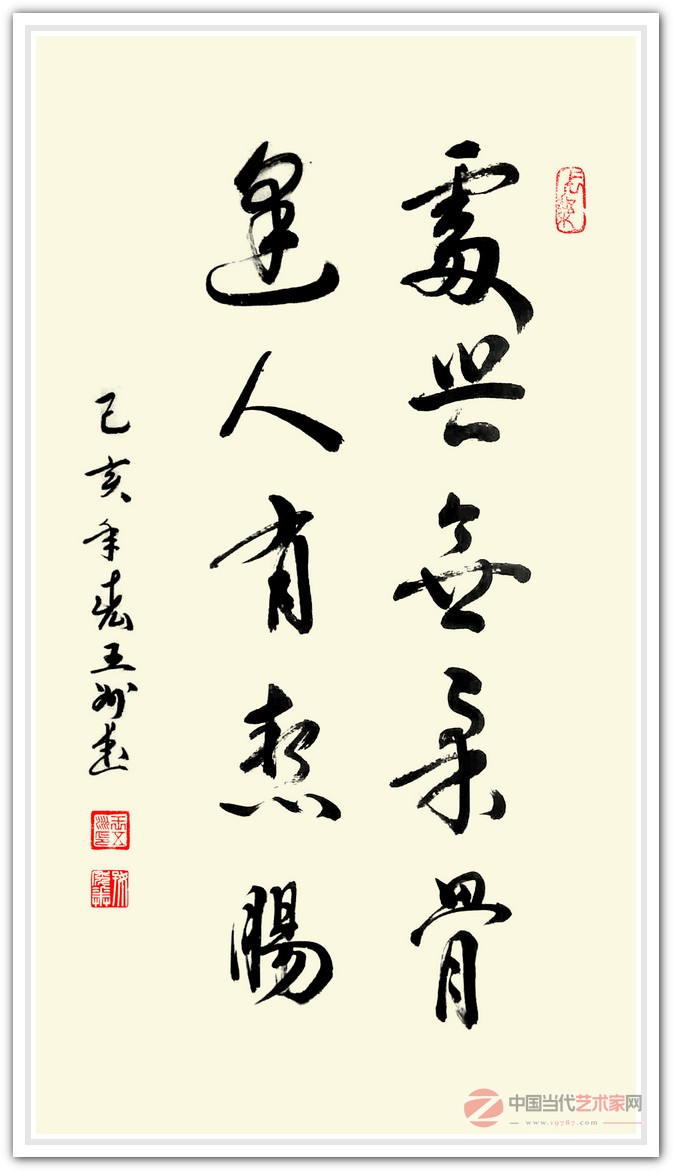 處世無柔骨
逢人有熱腸
己亥年春
中国当代艺术家网
www.19787.com